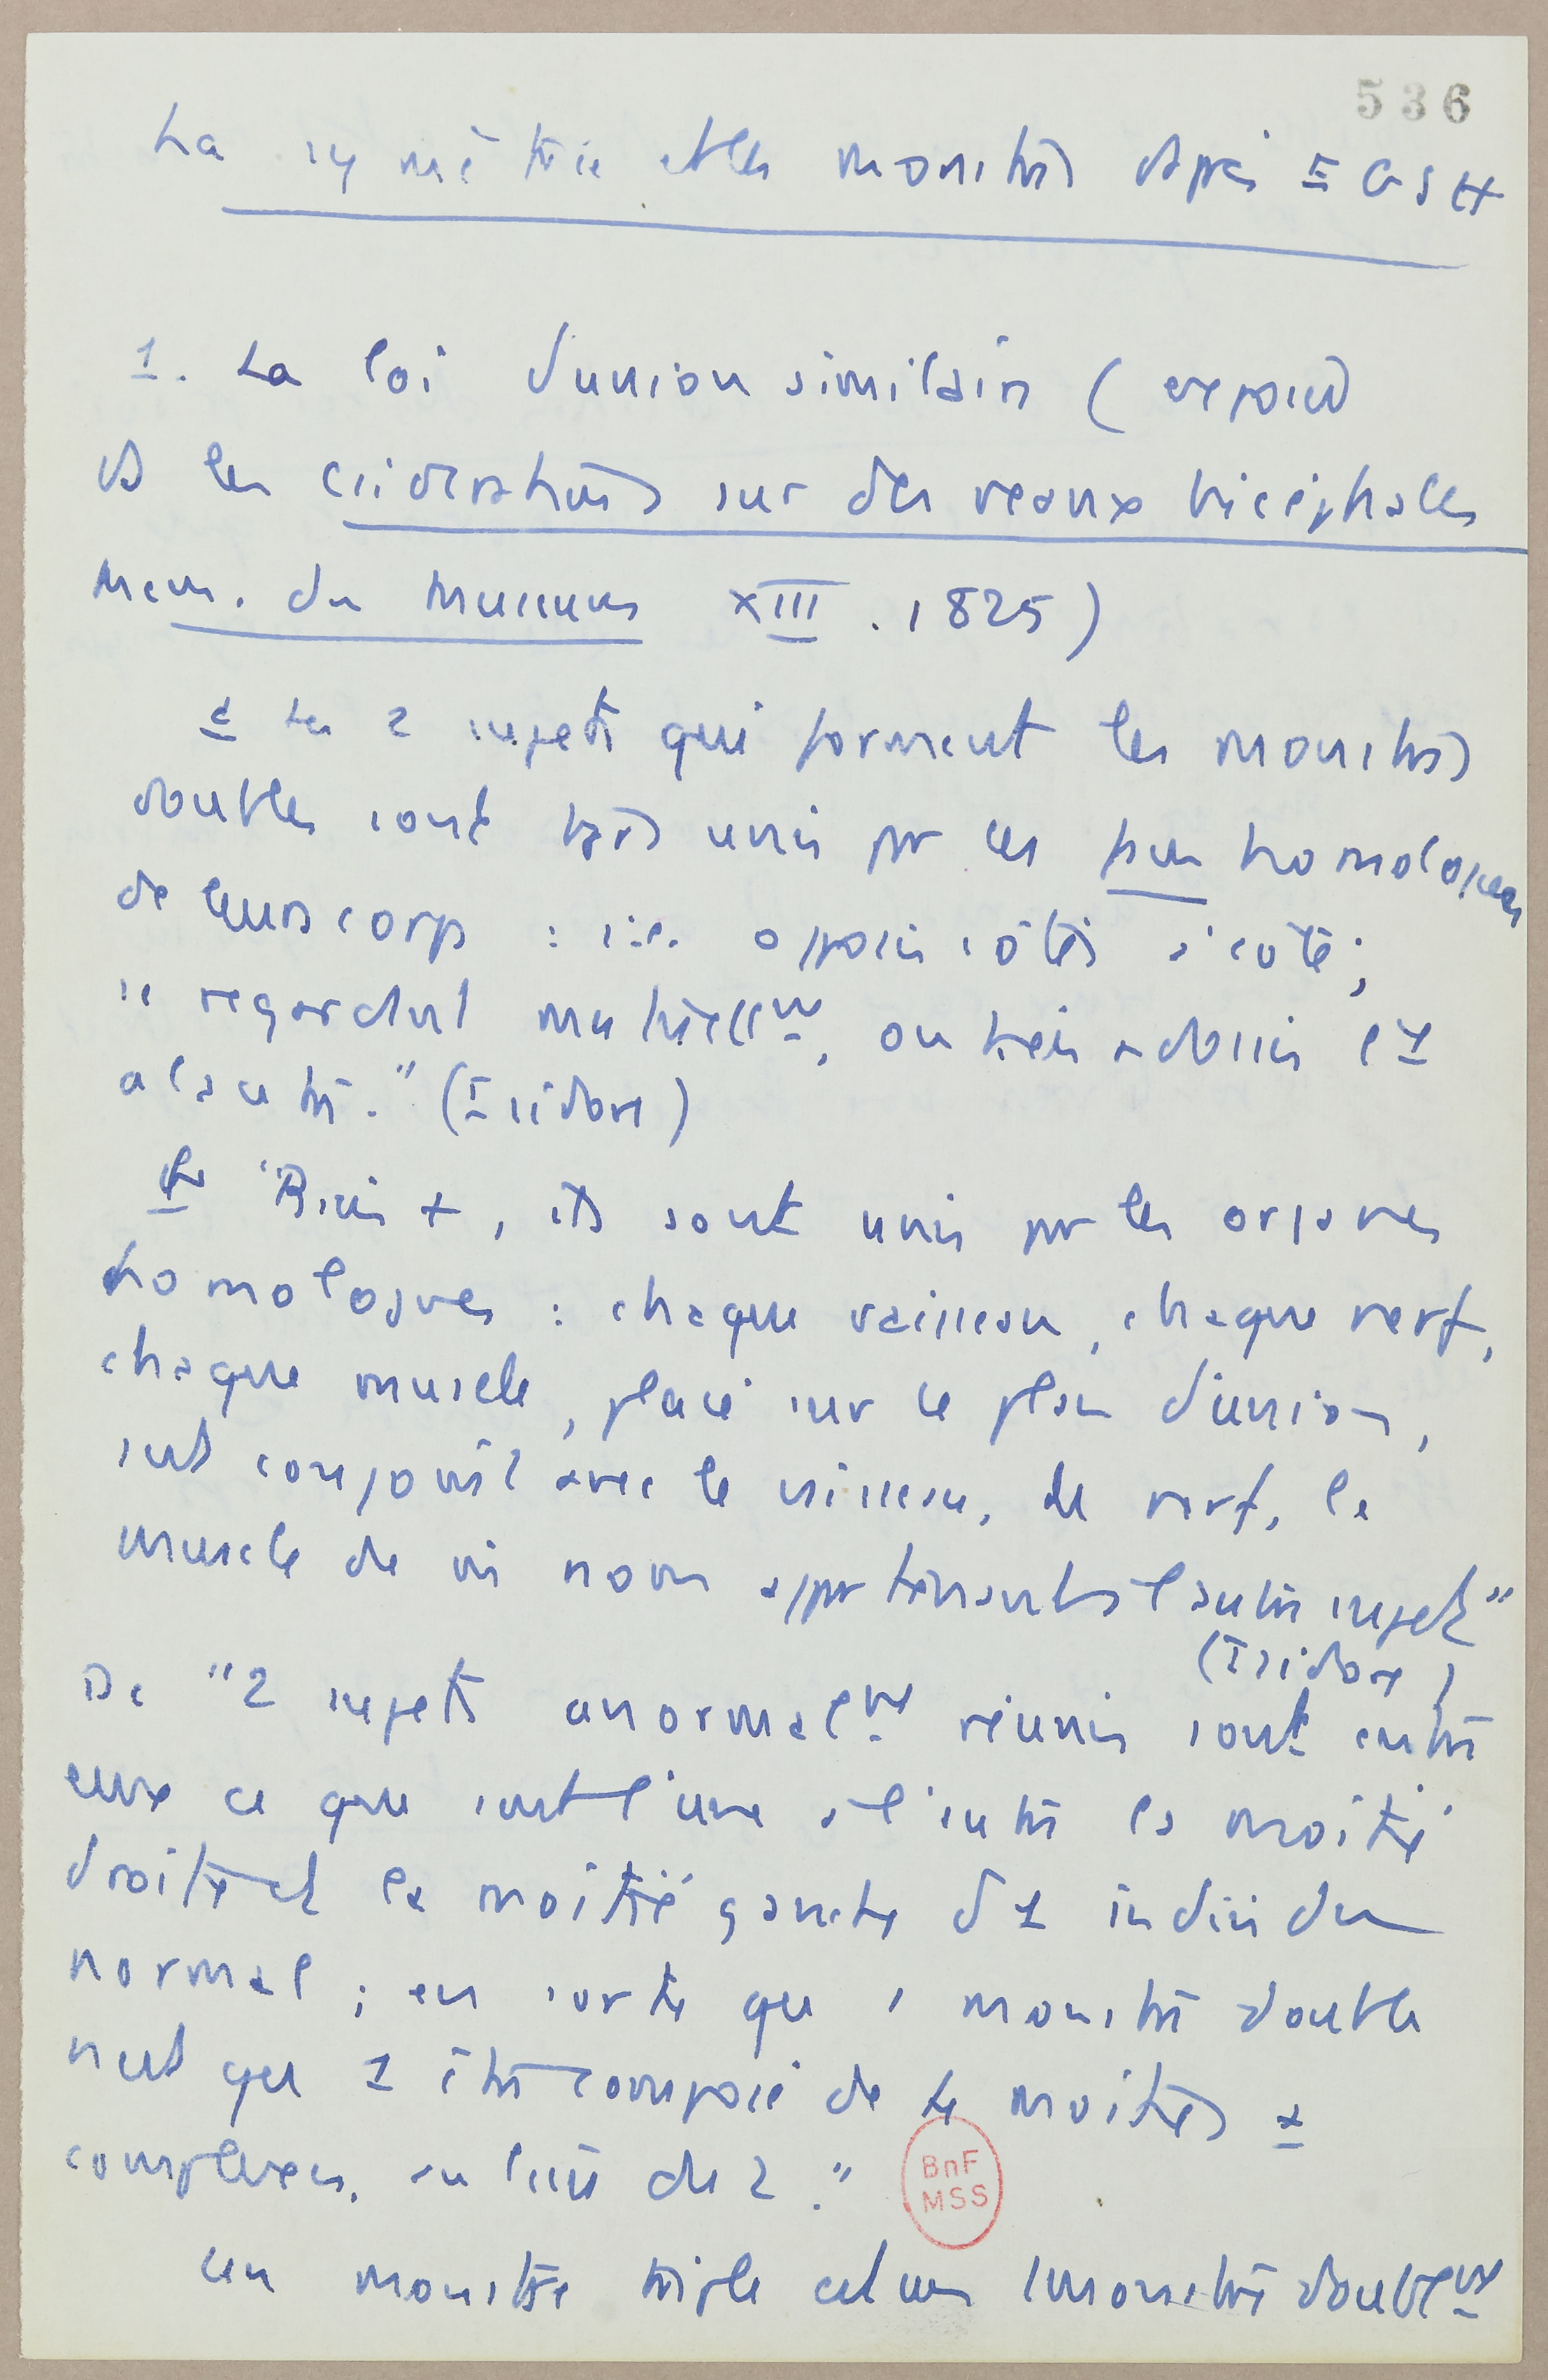 536
La symétrie et les monstres d'après E GSH
1. La loi d'union similaire (exposée
ds les considérations sur des veaux bicéphales
Mem. du Museum XIII. 1825)
a Les 2 sujets qui forment les monstres
doubles sont tjrs unis par les faces homologues
de leurs corps : i.e. opposés côté à côté ;
se regardant mutuellemt, ou bien adossés l'1
à l'autre." (Isidore)
b "Bien +, ils sont unis par les organes
homologues : chaque vaisseau, chaque nerf,
chaque muscle, placé sur le plan d'union,
est conjoint avec le vaisseau, le nerf, le
muscle de m nom appartenant à l'autre sujet"
(Isidore)
De "2 sujets anormalemt réunis sont entre
eux ce que sont l'une à l'autre la moitié
droite et la moitié gauche d'1 individu
normal ; en sorte qu 1 monstre double
n'est qu 1 être composé de 4 moitiés +
complexes, au lieu de 2."
BnF
MSS
Un monstre triple est un monstre doublemt